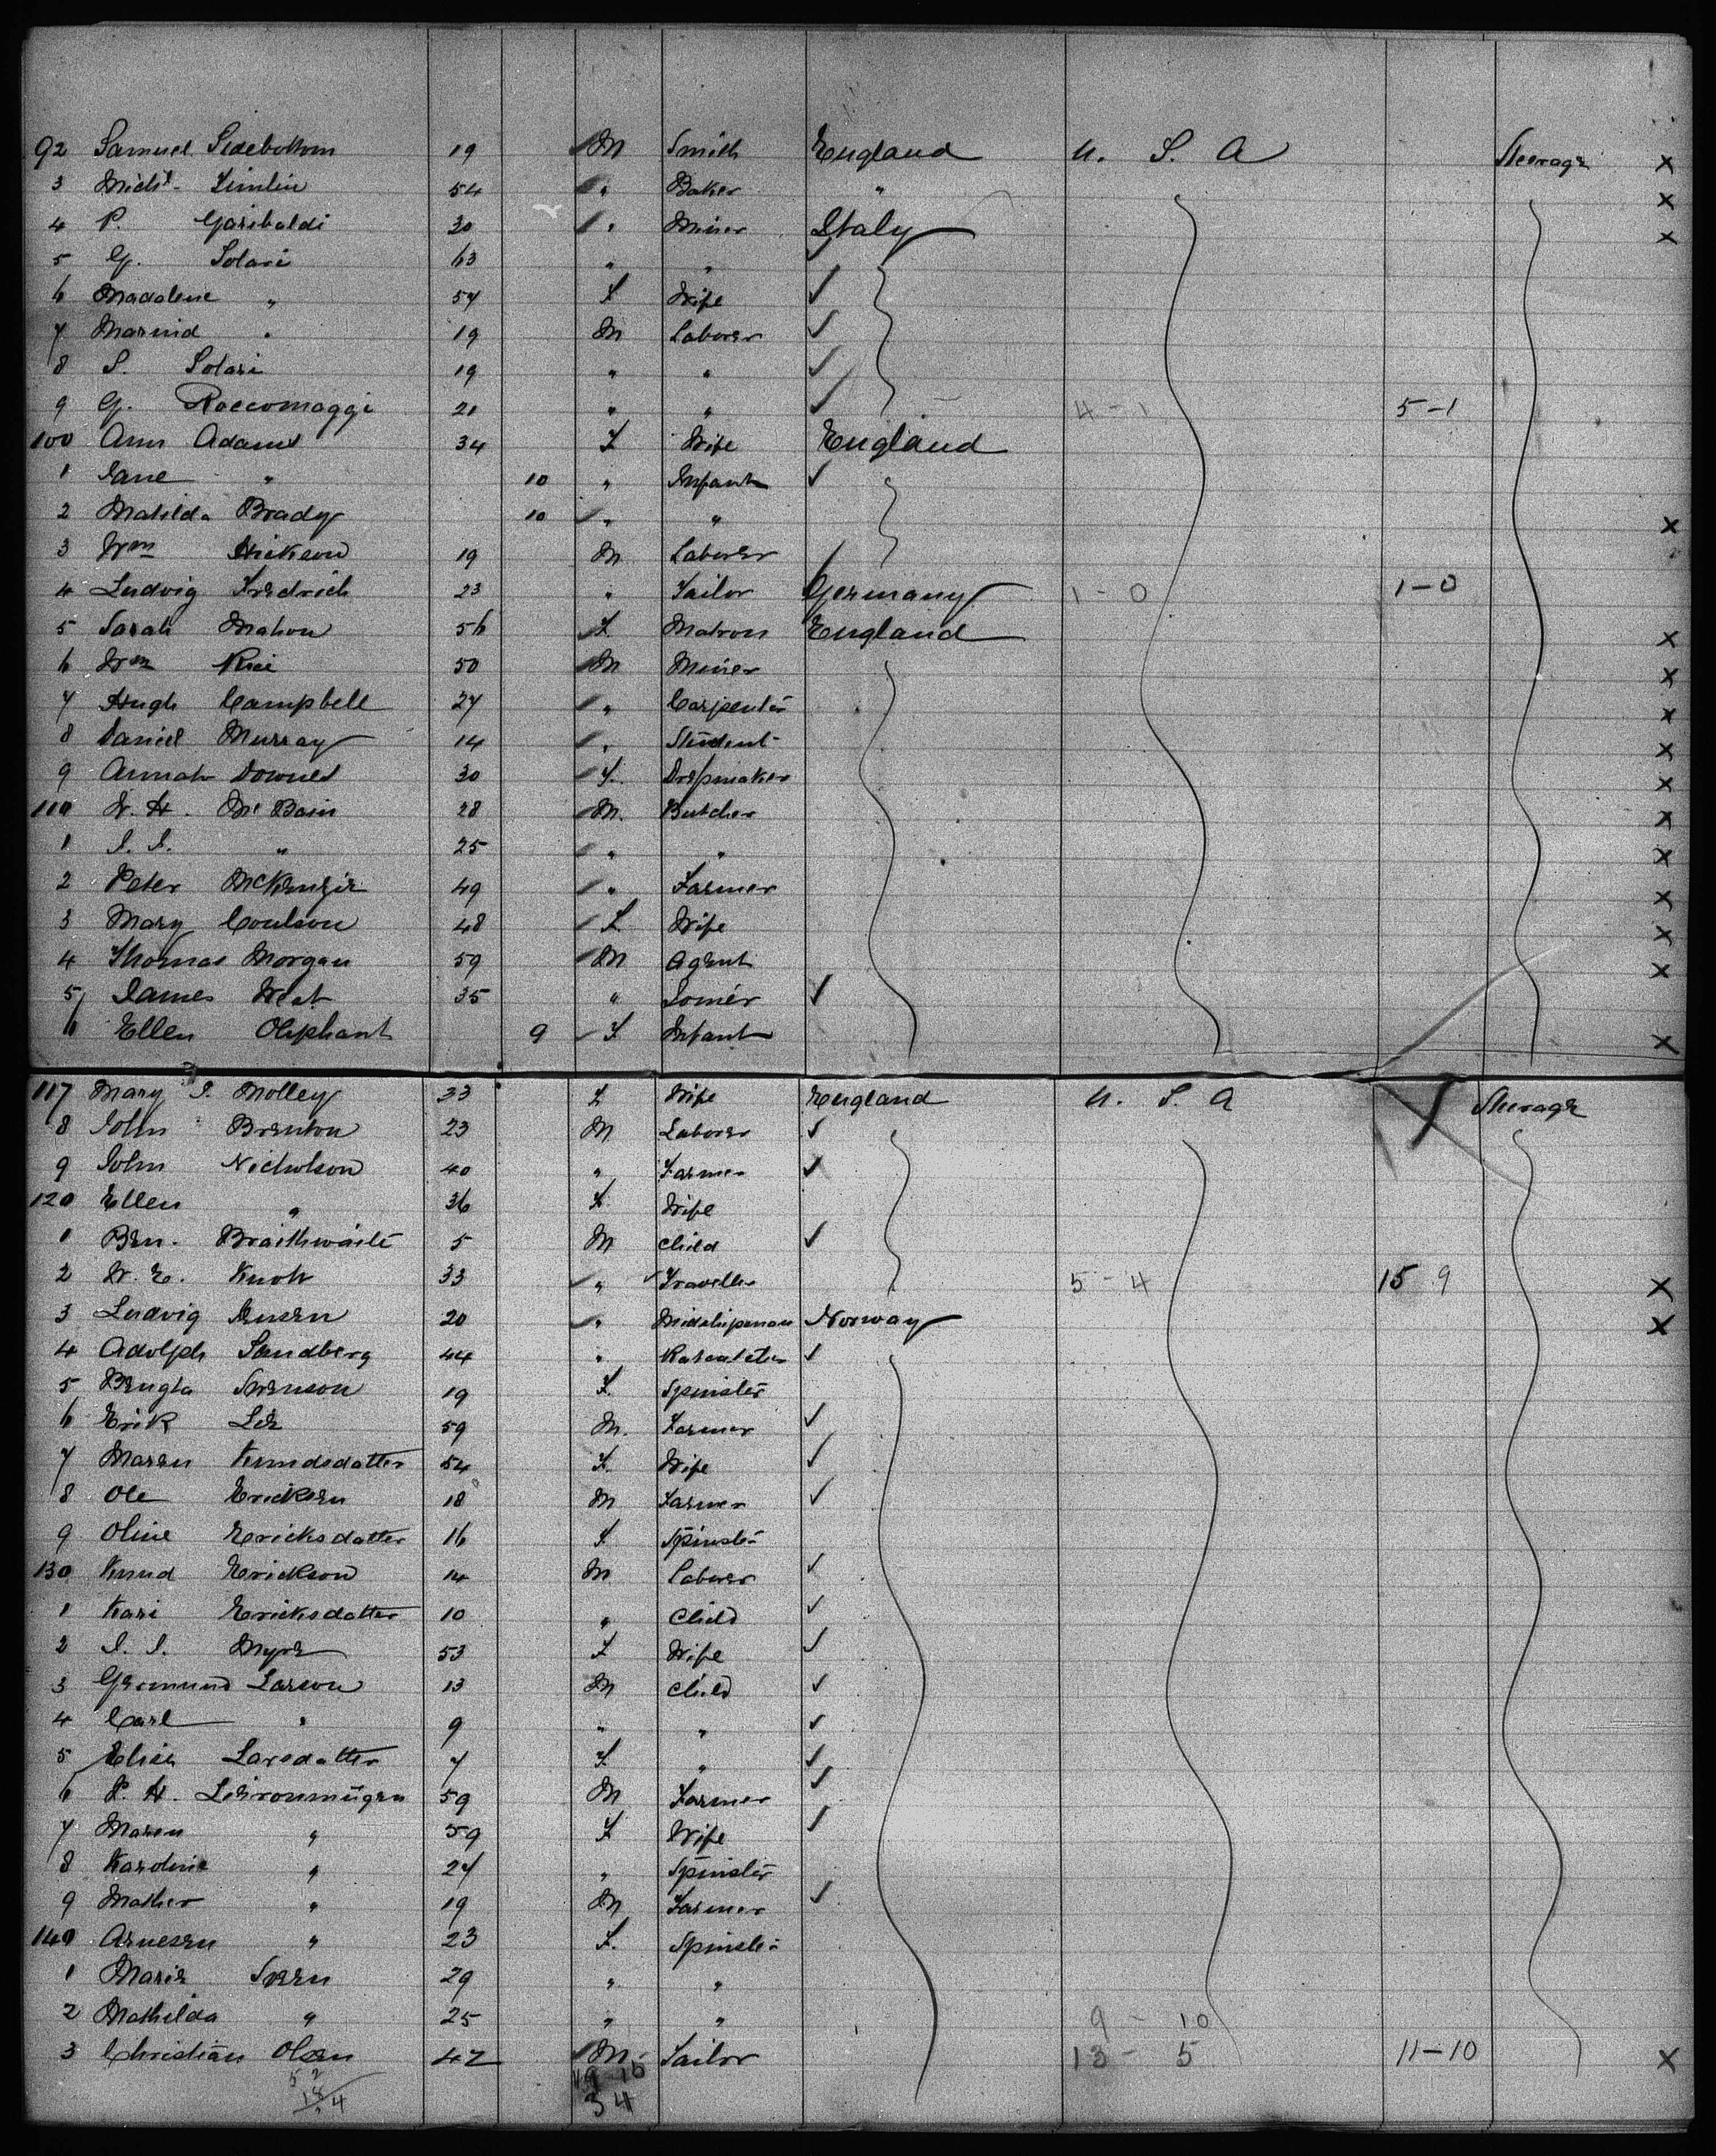 92 Samuel Sidebottom 19 M Smith England U. S. A Steerage X
3 Michl. Timlin 54 " Baker " X
4 P. Garibaldi 30 " Miner Italy X
5 G. Solari 63 " " ✓
6 Madalene " 54 F Wife ✓
7 " 19 M Laborer ✓
8 S. Solari 19 " " ✓
9 G. Roccomaggi 21 " " ✓ 4-1 5-1
100 Ann Adams 34 F Wife England
1 Jane " 10 " Infant ✓
2 Matilda Brady 10 " " X
3 Wm Hickson 19 M Laborer
4 Ludvig Fredrich 23 " Sailor Germany 1-0 1-0
5 Sarah Mahon 56 F Matron England X
6 Wm 50 M Miner X
7 Hugh Campbell 27 " Carpenter X
8 Daniel Murray 14 " Student X
9 Annah Downes 30 F. Dressmaker X
110 W. H. Mc Bain 28 M. Butcher X
1 J. J. " 25 " " X
2 Peter McKenzie 49 " Farmer X
3 Mary Coulson 48 F. Wife X
4 Thomas Morgan 59 M Agent X
5 James West 35 " ✓
6 Ellen Oliphant 9 F Infant X
117 Mary J. Molley 33 F Wife England U. S. A Steerage
8 John Brenton 23 M Laborer ✓
9 John Nicholson 40 " Farmer ✓
120 Ellen " 36 F. Wife
1 Ben. Braithwaite 5 M Child ✓
2 W. E. Knott 33 " Traveller 5-4 15 9 X
3 Ludvig Jensen 20 " Midshipman Norway X
4 Adolph Sandberg 44 " ✓
5 Bengta Svenson 19 F. Spinster
6 Erik Lie 59 M. Farmer ✓
7 Maren Knudsdatter 54 F. Wife ✓
8 Ole Ericksen 18 M Farmer ✓
9 Oline Ericksdatter 16 F Spinster
130 Knud Erickson 14 M Laborer ✓
1 Kari Ericksdatter 10 " Child ✓
2 J. J. Myre 53 F Wife ✓
3 Germund Larson 13 M Child ✓
4 Carl " 9 " " ✓
5 Elise Larsdatter 7 F " ✓
6 P. H. 59 M Farmer ✓
7 Maren " 59 F Wife ✓
8 Karoline " 24 " Spinster
9 Mather " 19 M Farmer ✓
140 Arnesen " 23 F. Spinster
1 Marie Sveen 29 " "
2 Mathilda " 25 " " 9 - 10
3 Christian Olsen 42 M. Sailor 13 - 5 11-10 X
19 15
34